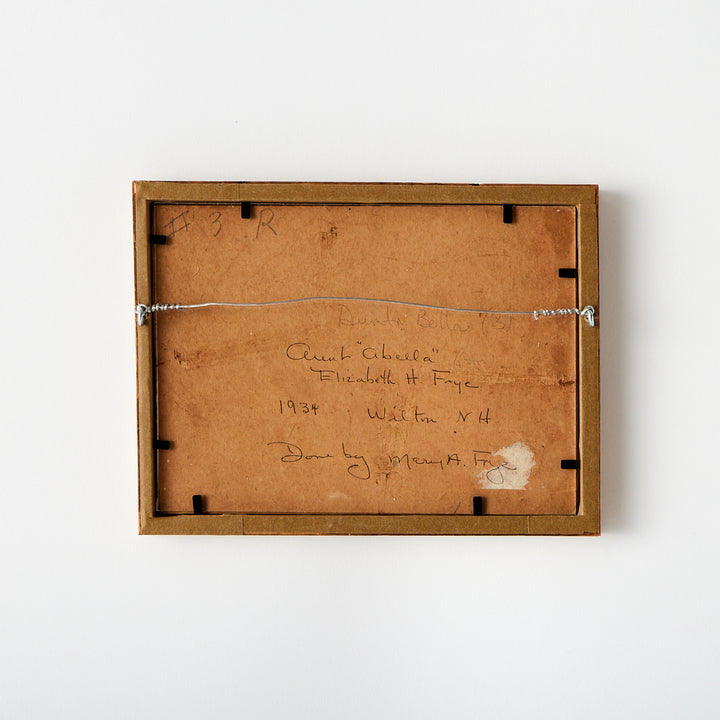 # 3 R
Aunt "Abella"
Elizabeth H Frye
1934 Wilton NH
Done by Mary A. Frye